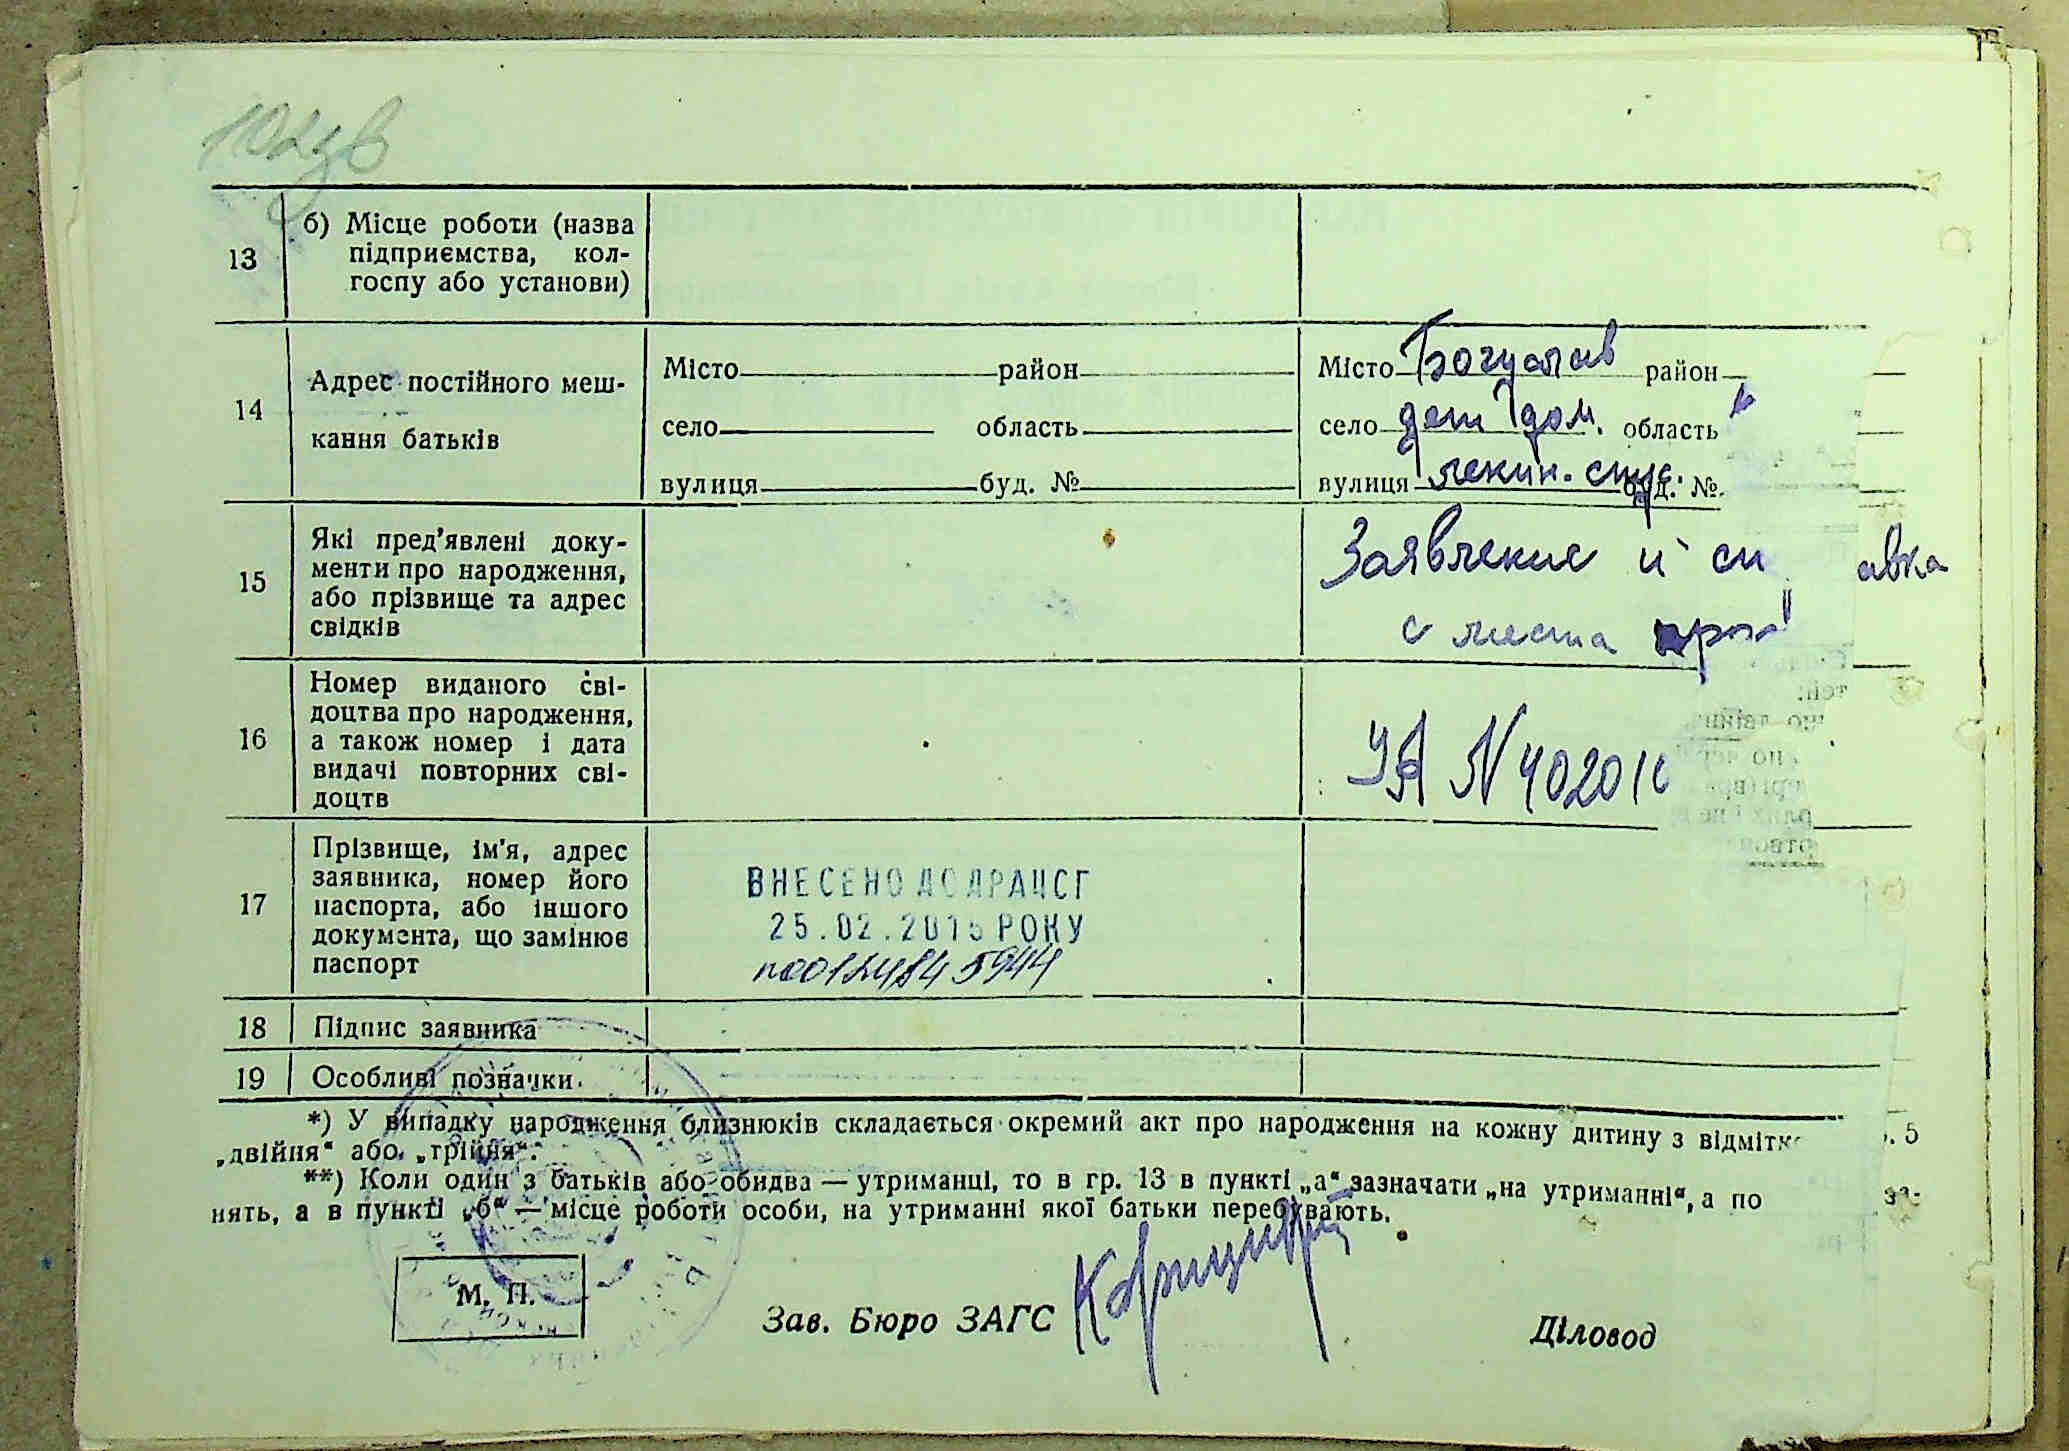 13
б) Місце роботи (назва
підприємства, кол-
госпу або установи)
14
Адрес постійного меш-
кання батьків
Місто район
село область
вулиця буд. №
Місто Богуслав район
село дет дом. область
вулиця буд. №
15
Які пред'явлені доку-
менти про народження,
або прізвище та адрес
свідків
Заявление и сп авка
с места
16
Номер виданого сві-
доцтва про народження,
а також номер і дата
видачі повторних сві-
доцтв
УА N 402010
17
Прізвище, ім'я, адрес
заявника, номер його
паспорта, або іншого
документа, що замінює
паспорт
ВНЕСЕНО ДО ДРАЦСГ
25.02.2015 РОКУ
18
Підпис заявника
19
Особливі позначки.
*) У випадку народження близнюків складається окремий акт про народження на кожну дитину з відмітк . 5
„двійня“ або „трійня“.
**) Коли один з батьків або обидва — утриманці, то в гр. 13 в пункті „а“ зазначати „на утриманні“, а по за-
нять, а в пункті „б“ — місце роботи особи, на утриманні якої батьки перебувають.
М. П.
Зав. Бюро ЗАГС
Діловод